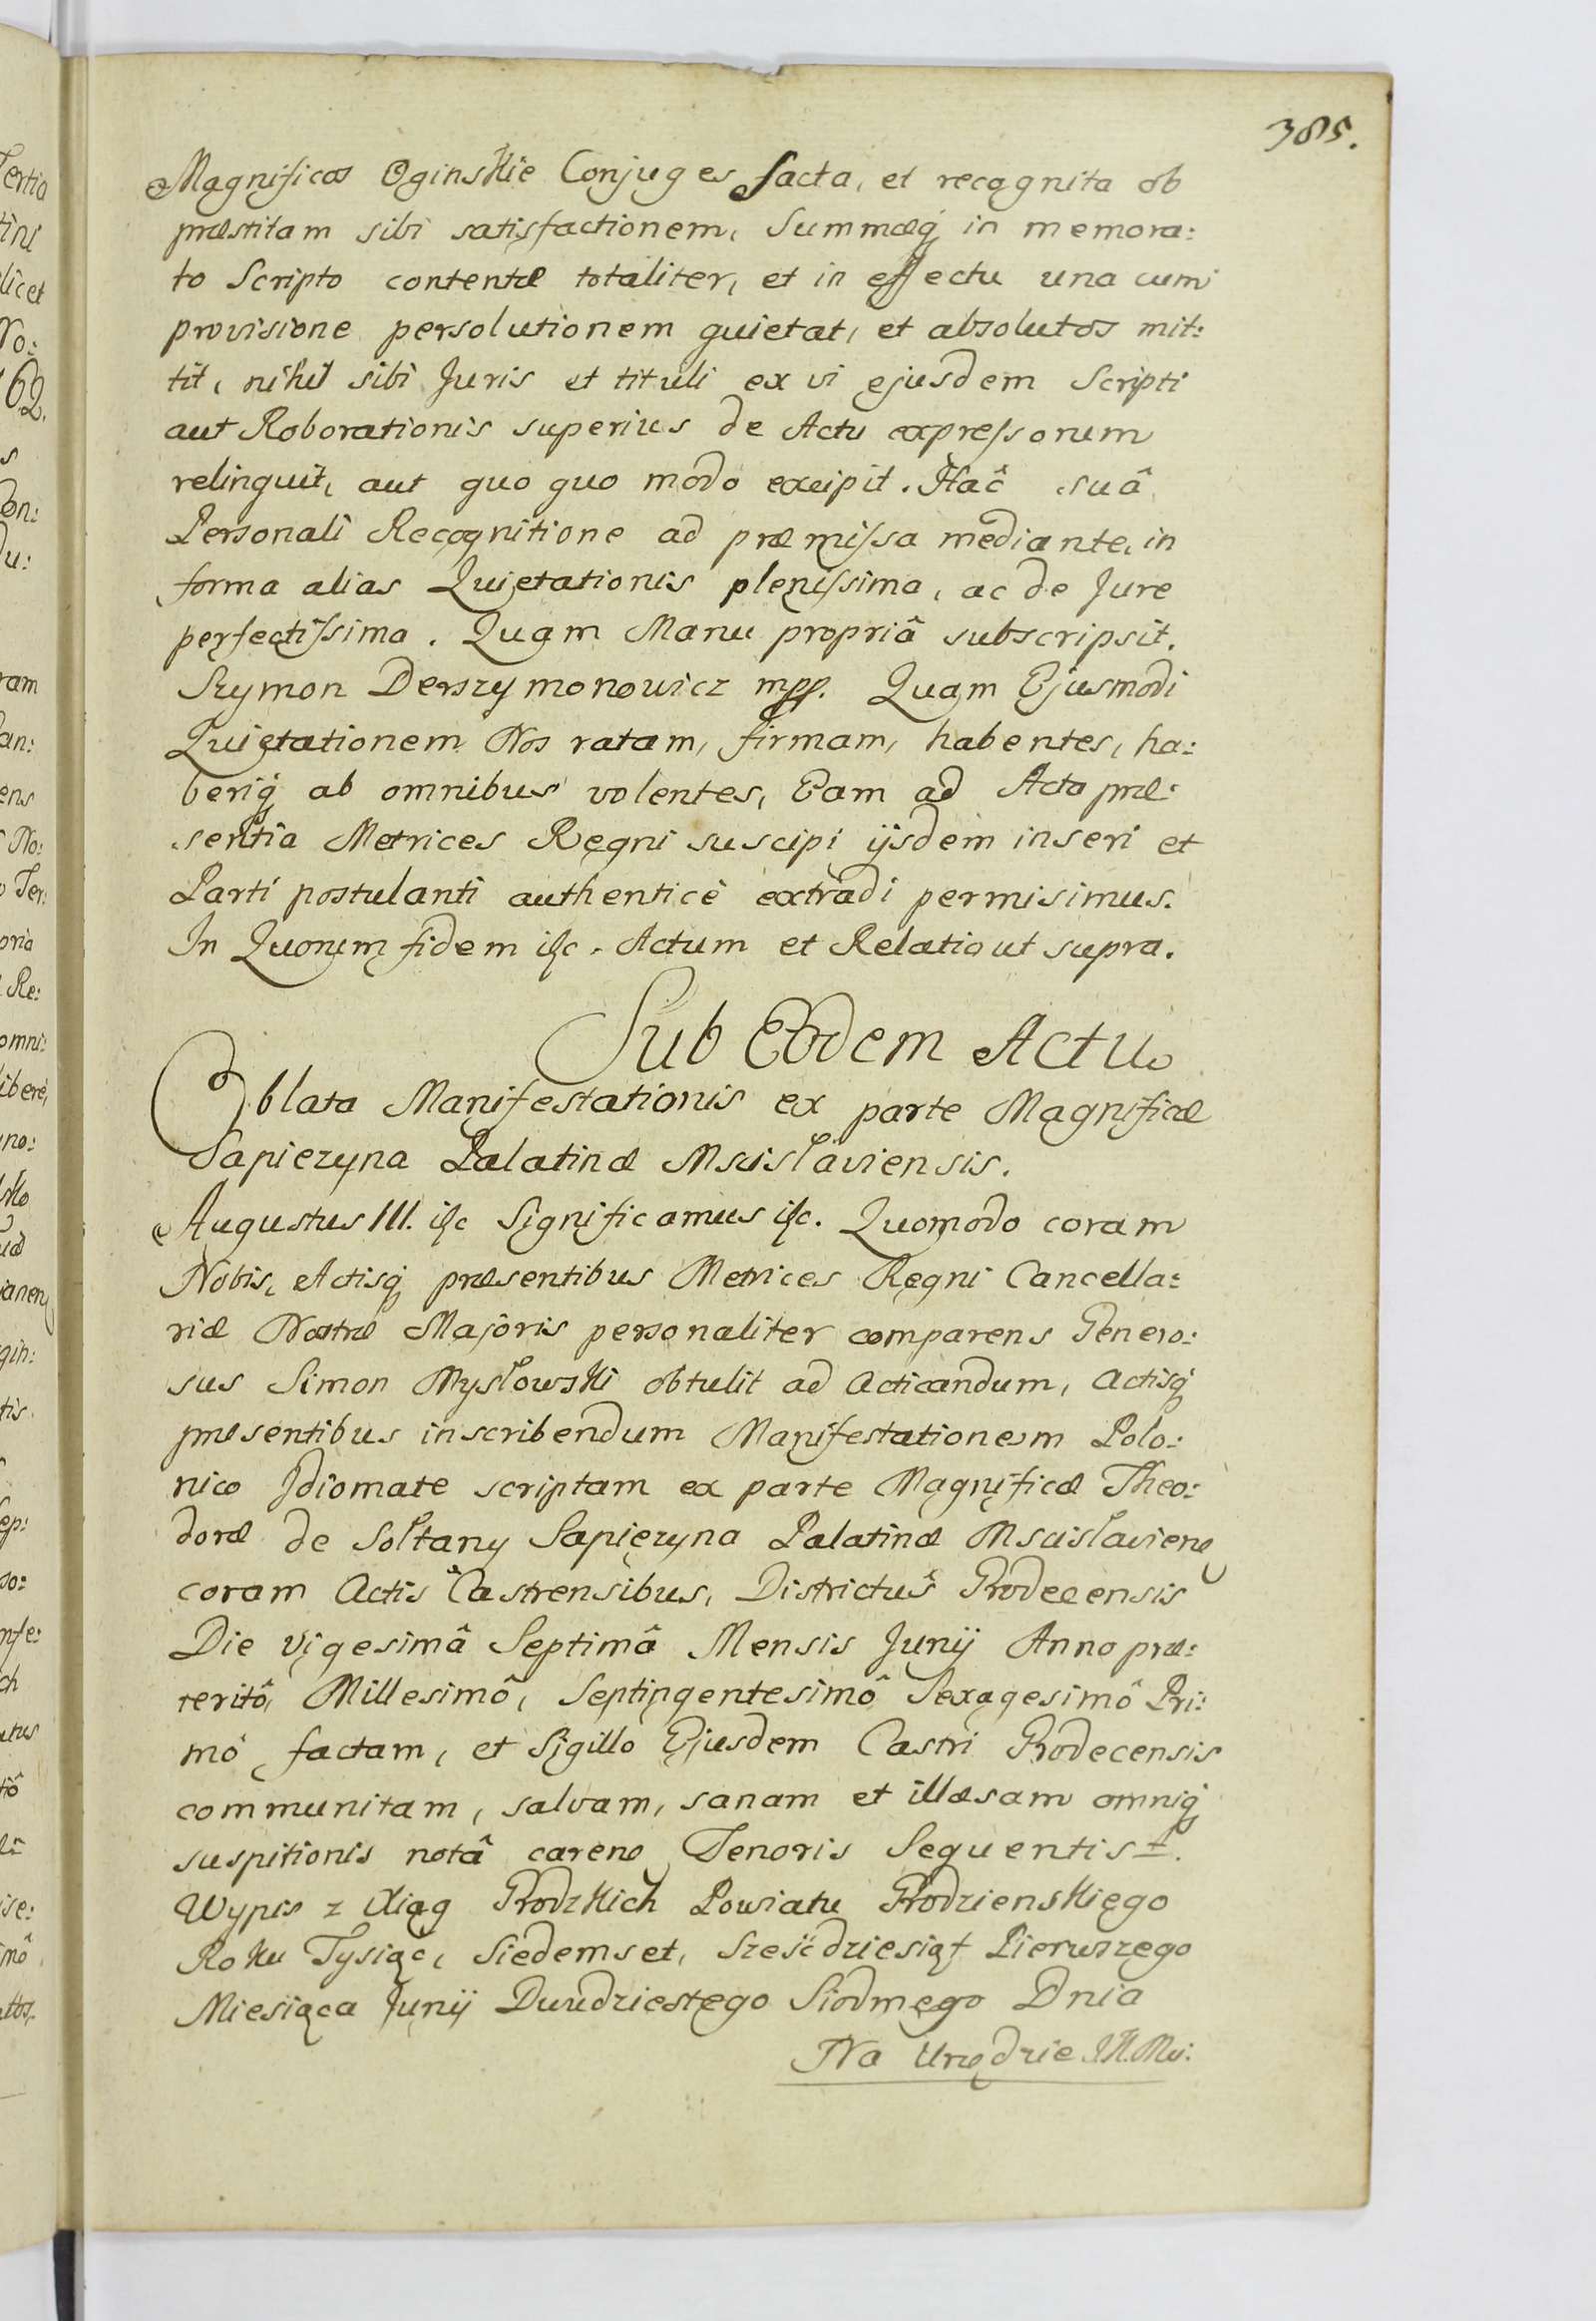 385.
Magnificos Oginskie Conjuges facta, et recognita ob
præstitam sibi satisfactionem, Summæq́ in memora:
to Scripto contentæ totaliter, et in effectu una cum
provisione persolutionem quietat, et absolutos mit:
tit, nihil sibi Juris et tituli ex vi ejusdem Scripti
aut Roborationis superius de Actu expressorum
relinquit, aut quo quo modo excipit. Hac̑ suâ
Personali Recognitione ad præmissa mediante, in
forma alias Quietationis plenissima, ac de Jure
perfectissima. Quam Manu propriâ subscripsit.
Szymon Derszymonowicz mpp. Quam Ejusmodi
Quietationem Nos ratam, firmam, habentes, ha:
beriq́ ab omnibus volentes, Eam ad Acta præ:
sentia Metrices Regni suscipi ijsdem inseri et
Parti postulanti authenticè extradi permisimus.
In Quorum fidem itc. Actum et Relatio ut supra.
Sub Eodem Actu
Oblata Manifestationis ex parte Magnificæ
Sapiezyna Palatinæ Mscislaviensis.
Augustus III. itc Significamus itc. Quomodo coram
Nobis, Actisq́ præsentibus Metrices Regni Cancella:
riæ Nostræ Majoris personaliter comparens Genero:
sus Simon Mysłowski obtulit ad Acticandum, Actisq́
præsentibus inscribendum Manifestationem Polo:
nico Idiomate scriptam ex parte Magnificæ Theo:
doræ de Sołtany Sapiezyna Palatinæ Mscislavien
coram Actis Castrensibus, Districtus Grodecensis
Die Vigesimâ Septimâ Mensis Junij Anno præ:
teritô, Millesimô, Septingentesimô Sexagesimô Pri:
mô factam, et Sigillo Ejusdem Castri Grodecensis
communitam, salvam, sanam et illæsam omniq́
suspitionis notâ caren Tenoris Sequentis.
Wypis z Xiąg Grodzkich Powiatu Grodzienskięgo
Roku Tysiąc, Siedemset, Sześćdziesiąt Pierwszego
Miesiąca Junij Dwudziestęgo Siodmęgo Dnia
Na Urzędzie